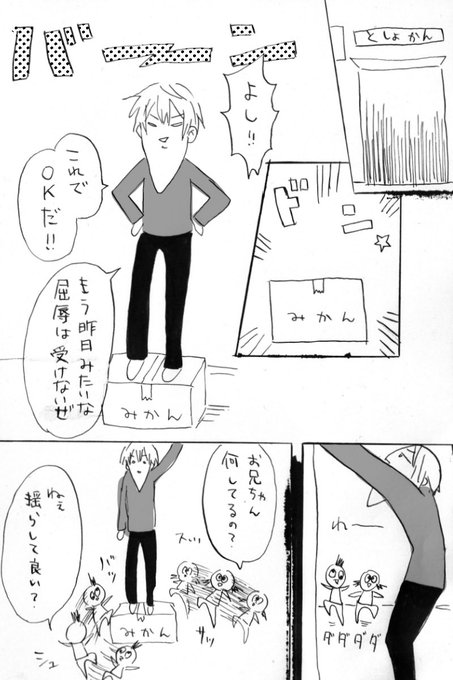 としょかん
ドーン
みかん
バーン
よし!!
これで
OKだ!!
もう昨日みたいな
屈辱は受けないぜ
みかん
わー
ダダダダ
お兄ちゃん
何してるの?
スッ
サッ
バッ
シュ
ねぇ
揺らして良い?
みかん